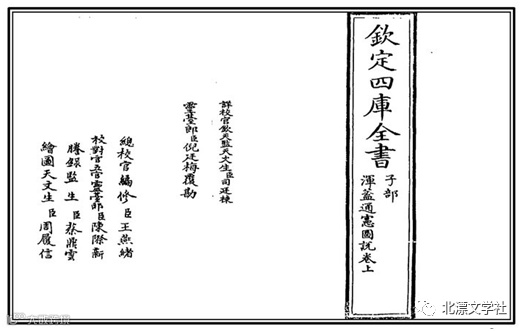 欽定四庫全書
子部
渾蓋通憲圖說卷上
詳校官欽天監天文生臣司廷棟
靈臺郎臣倪廷梅覆勘
總校官編修臣王燕緒
校對官五官靈臺郎臣陳際新
謄錄監生臣蔡鼎雯
繪圖天文生臣周履信
北漂文学社